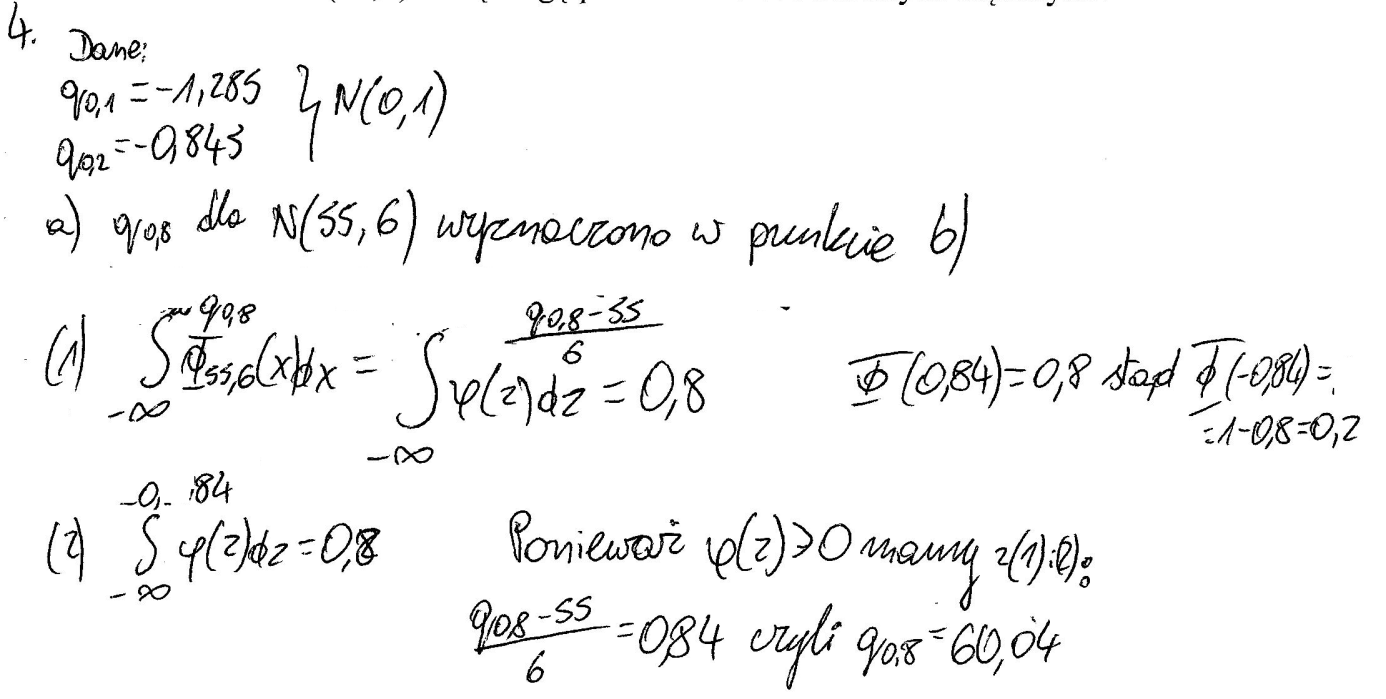 4. Dane:
q_{0,1} = -1,285 } N(0,1)
q_{0,2} = -0,843
a) q_{0,8} dla N(55,6) wyznaczono w punkcie b)
(1) ∫_{-∞}^{q_{0,8}} Φ_{55,6}(x)dx = ∫_{-∞}^{\frac{q_{0,8}-55}{6}} φ(z)dz = 0,8 Φ(0,84)=0,8 stąd Φ(-0,84)=
=1-0,8=0,2
(2) ∫_{-∞}^{0,84} φ(z)dz = 0,8 Ponieważ φ(z)>0 mamy z (1) i (2):
\frac{q_{0,8}-55}{6} = 0,84 czyli q_{0,8} = 60,04